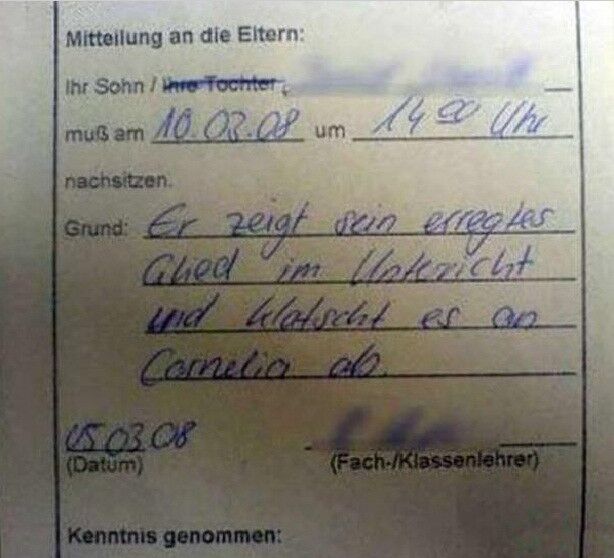 Mitteilung an die Eltern:
Ihr Sohn / Ihre Tochter,
muß am 10.03.08 um 14 00 Uhr
nachsitzen.
Grund: Er zeigt sein erregtes
Glied im Unterricht
und klatscht es an
Cornelia ab.
05.03.08
(Datum) (Fach-/Klassenlehrer)
Kenntnis genommen: